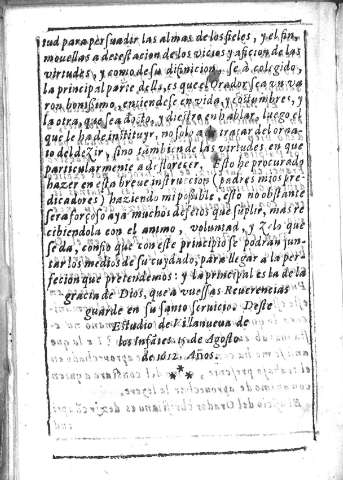 tud para persuadir las almas de los fieles, y el fin,
mouellas a detestacion de los vicios y aficion de las
virtudes, y como de su difinicion, se à colegido,
la principal parte della, es que el Orador sea vn va
ron bonissimo, entiendese en vida, y costumbres, y
la otra, que sea docto, y diestro en hablar, luego el
que le ha de instituyr, no solo a de tratar del orna-
to del dezir, sino tambien de las virtudes en que
particularmente a de florecer. Esto he procurado
hazer en esta breue instrucion (padres mios pre-
dicadores) haziendo mi posible, esto no obstante
sera forçoso aya muchos defetos que suplir, mas re
cibiendola con el animo, voluntad, y zelo que
se da, confio que con este principio se podran jun-
tar los medios de su cuydado, para llegar a la per-
feciõn que pretendemos: y la principal es la de la
gracia de Dios, que a vuessas Reuerencias
guarde en su santo seruicio. Deste
Estudio de Villanueua de
los Infãtes. 15. de Agosto
de 1612. Años.